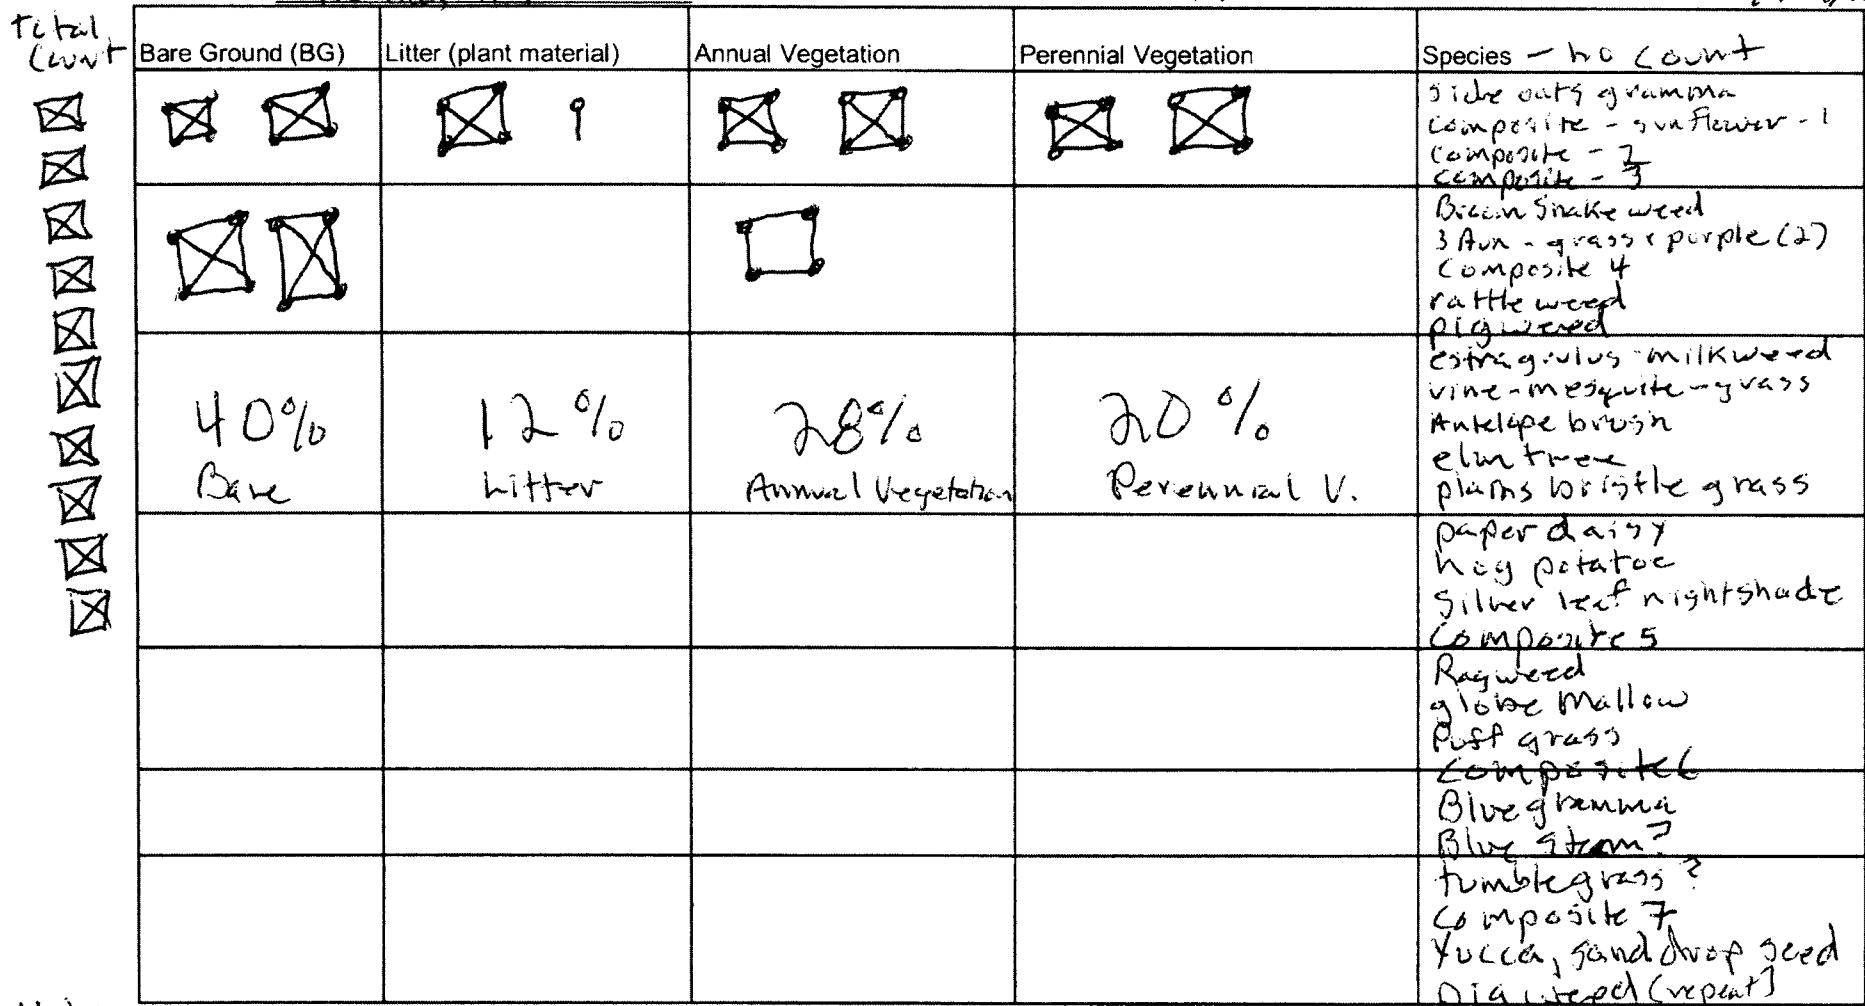 Total
Count
Bare Ground (BG)
Litter (plant material)
Annual Vegetation
Perennial Vegetation
Species - no count
side oats gramma
composite - sunflower - 1
composite - 2
composite - 3
Broom Snake weed
3 Awn - grass & purple (2)
Composite 4
rattle weed
pigweed
40%
Bare
12%
Litter
28%
Annual Vegetation
20%
Perennial V.
estragulus milkweed
vine-mesquite-grass
Antelope brush
elm tree
plains bristle grass
paper daisy
hog potatoe
Silver leaf nightshade
Composite 5
Ragweed
globe Mallow
Puff grass
Composite 6
Blue gramma
Blue stem?
tumblegrass?
Composite 7
Yucca, sand drop seed
pig weed (repeat)